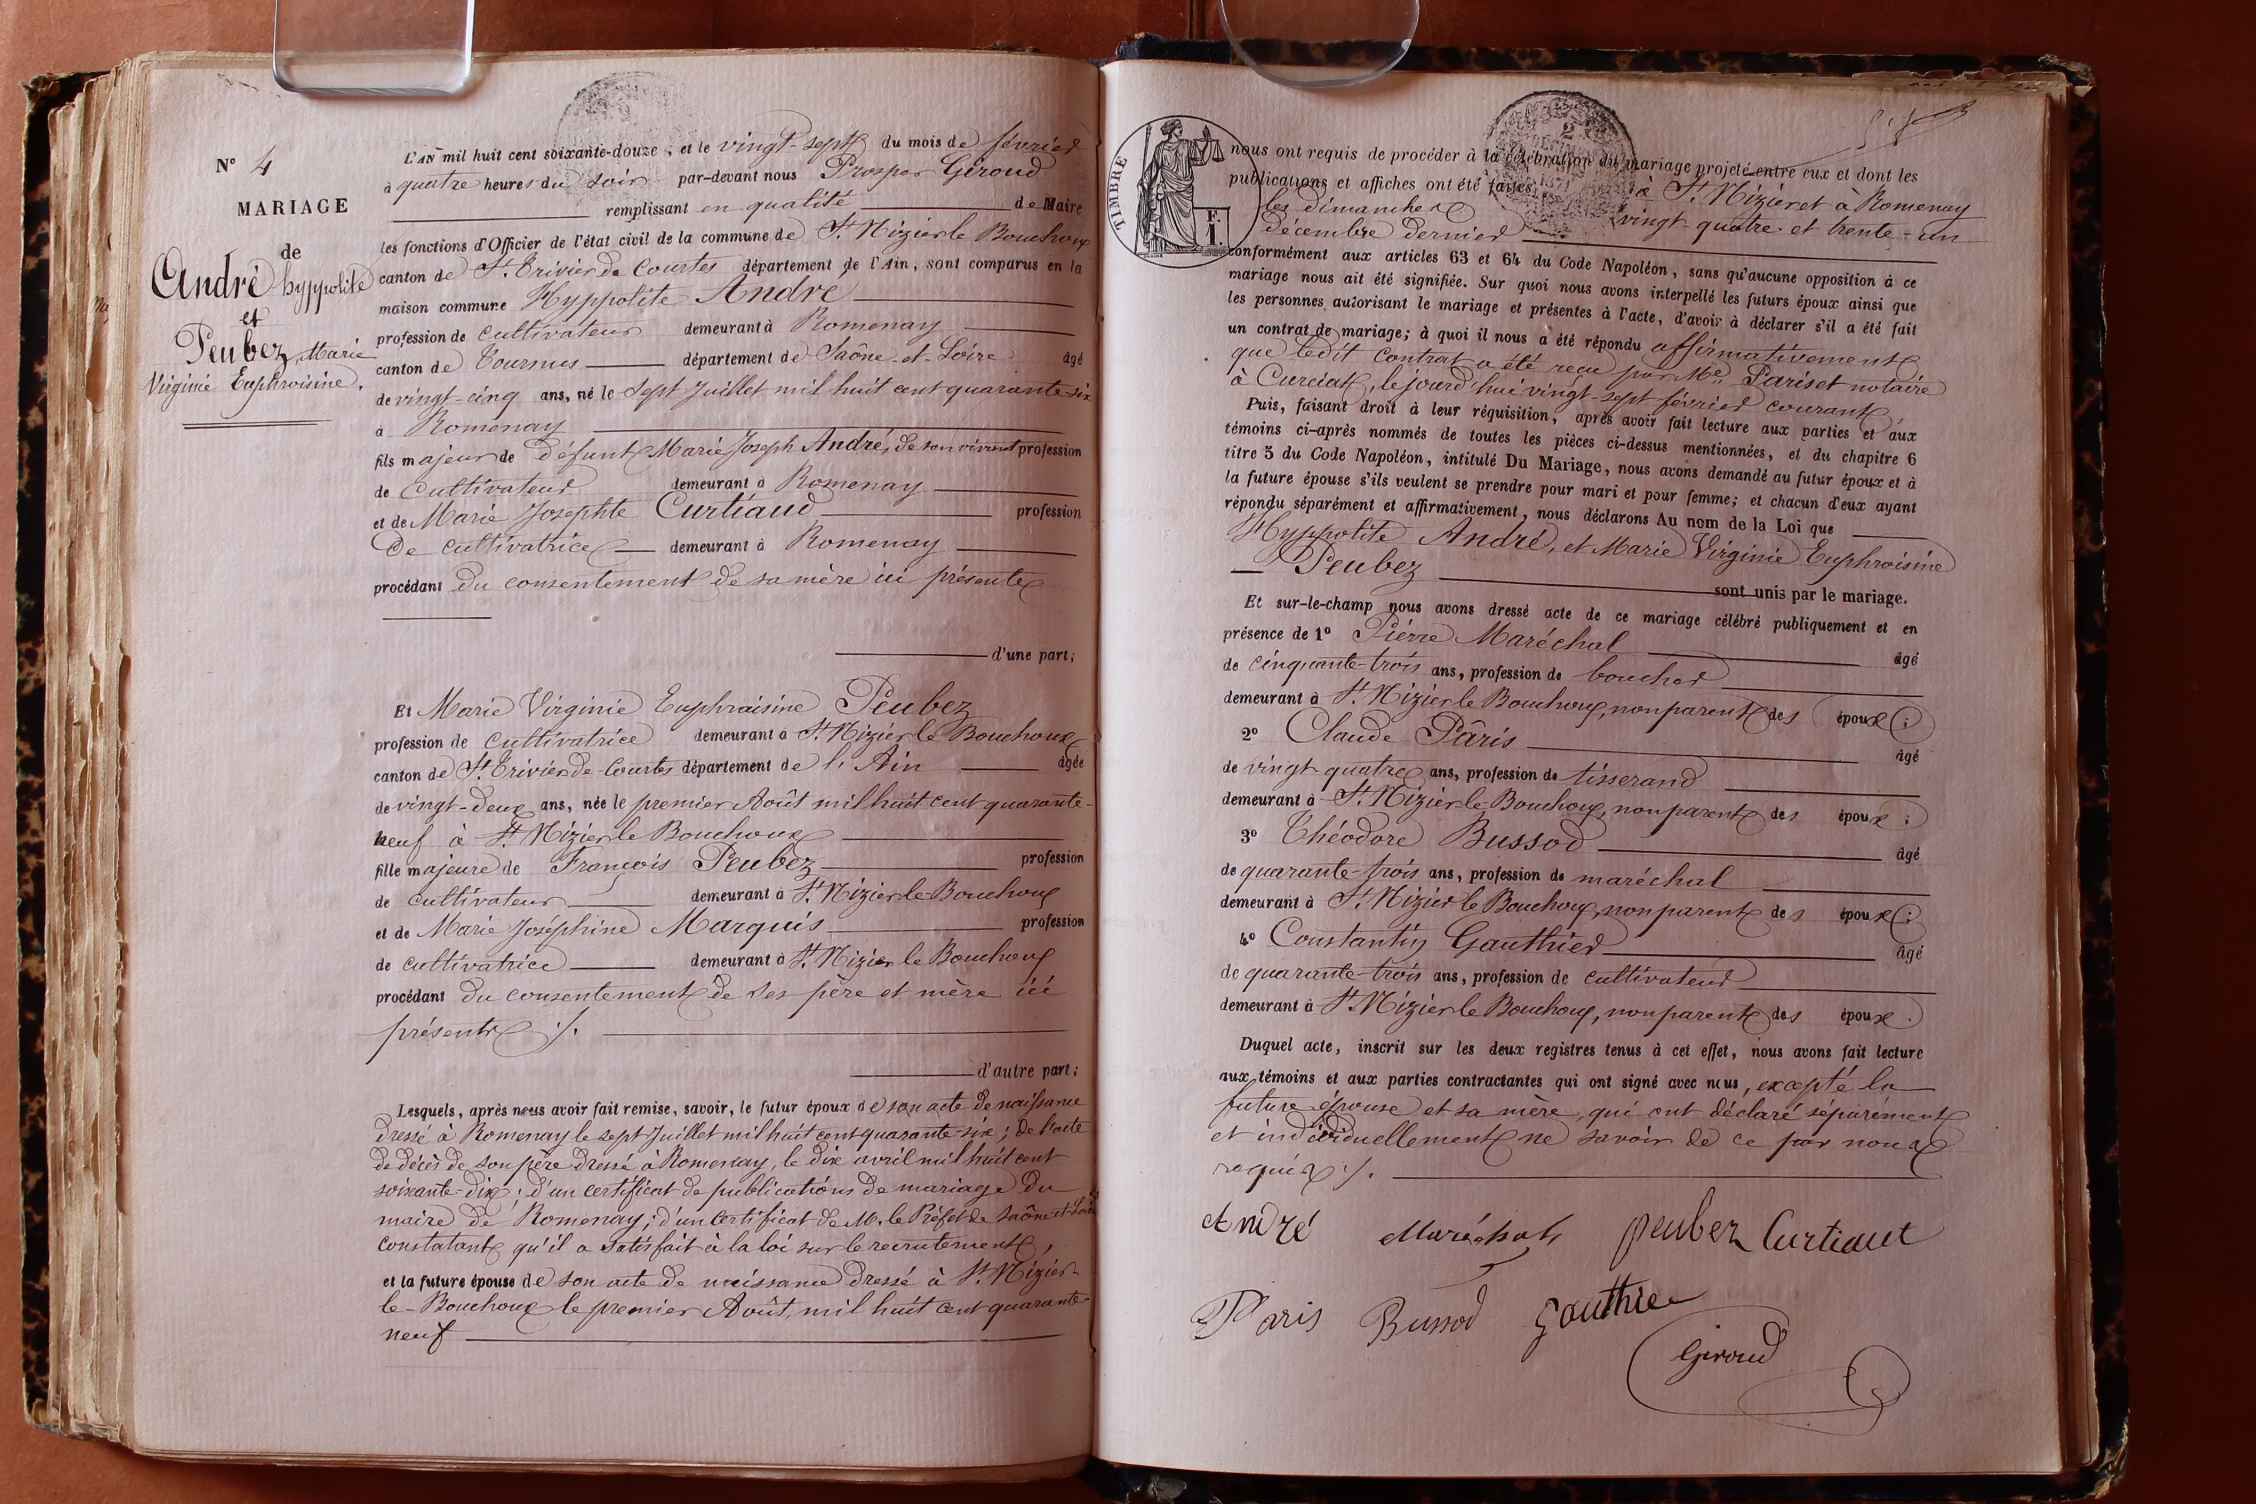 N° 4
MARIAGE
de
André hyppolite
et
Peubez, Marie
Virginie Euphroisine.
L'AN mil huit cent soixante-douze, et le vingt-sept du mois de février
à quatre heures du soir par-devant nous Prosper Giroud
remplissant en qualité de Maire
les fonctions d'Officier de l'état civil de la commune de St. Nizier le Bouchoux
canton de St. Trivier de Courtes département de l'Ain, sont comparus en la
maison commune Hyppolite André
profession de cultivateur demeurant à Romenay
canton de Tournus département de Saône-et-Loire âgé
de vingt-cinq ans, né le sept Juillet mil huit cent quarante-six
à Romenay
fils majeur de défunt Marie Joseph André, de son vivant profession
de cultivateur demeurant à Romenay
et de Marie Josephte Curtiaud profession
de cultivatrice demeurant à Romenay
procédant du consentement de sa mère ici présente
d'une part;
Et Marie Virginie Euphraisine Peubez
profession de cultivatrice demeurant à St. Nizier le Bouchoux
canton de St. Trivier de-Courtes département de l'Ain âgée
de vingt-deux ans, née le premier Août mil huit cent quarante-
neuf à St. Nizier le Bouchoux
fille majeure de François Peubez profession
de cultivateur demeurant à St. Nizier-le-Bouchoux
et de Marie Joséphine Marquis profession
de cultivatrice demeurant à St. Nizier le Bouchoux
procédant du consentement de ses père et mère ici
présents ./.
d'autre part;
Lesquels, après nous avoir fait remise, savoir, le futur époux de son acte de naissance
dressé à Romenay le sept Juillet mil huit cent quarante-six; de l'acte
de décès de son père dressé à Romenay, le dix avril mil huit cent
soixante-dix; d'un certificat de publications de mariage du
maire de Romenay; d'un certificat de M. le Préfet de Saône-et-Loire
constatant qu'il a satisfait à la loi sur le recrutement,
et la future épouse de son acte de naissance dressé à St. Nizier-
le-Bouchoux le premier Août mil huit cent quarante-
neuf
TIMBRE
F.
1.
2
nous ont requis de procéder à la célébration du mariage projeté entre eux et dont les
publications et affiches ont été faites à St. Nizier et à Romenay
les dimanches vingt-quatre et trente-un
décembre dernier
conformément aux articles 63 et 64 du Code Napoléon, sans qu'aucune opposition à ce
mariage nous ait été signifiée. Sur quoi nous avons interpellé les futurs époux ainsi que
les personnes autorisant le mariage et présentes à l'acte, d'avoir à déclarer s'il a été fait
un contrat de mariage; à quoi il nous a été répondu affirmativement
que ledit contrat a été reçu par Me. Pariset notaire
à Curciat, le jourd'hui vingt-sept février courant.
Puis, faisant droit à leur réquisition, après avoir fait lecture aux parties et aux
témoins ci-après nommés de toutes les pièces ci-dessus mentionnées, et du chapitre 6
titre 5 du Code Napoléon, intitulé Du Mariage, nous avons demandé au futur époux et à
la future épouse s'ils veulent se prendre pour mari et pour femme; et chacun d'eux ayant
répondu séparément et affirmativement, nous déclarons Au nom de la Loi que
Hyppolite André, et Marie Virginie Euphroisine
Peubez
sont unis par le mariage.
Et sur-le-champ nous avons dressé acte de ce mariage célébré publiquement et en
présence de 1° Pierre Maréchal âgé
de cinquante-trois ans, profession de boucher
demeurant à St. Nizier le Bouchoux, non parent des époux;
2° Claude Pâris âgé
de vingt quatre ans, profession de tisserand
demeurant à St. Nizier-le-Bouchoux, non parent des époux;
3° Théodore Bussod âgé
de quarante-trois ans, profession de maréchal
demeurant à St. Nizier le Bouchoux, non parent des époux;
4° Constantin Gauthier âgé
de quarante-trois ans, profession de cultivateur
demeurant à St. Nizier le Bouchoux, non parent des époux.
Duquel acte, inscrit sur les deux registres tenus à cet effet, nous avons fait lecture
aux témoins et aux parties contractantes qui ont signé avec nous, excepté la
future épouse et sa mère, qui ont déclaré séparément
et individuellement ne savoir de ce par nous
requis ./.
André Maréchal Peubez Curtiaut
Paris Bussod Gauthier
Giroud